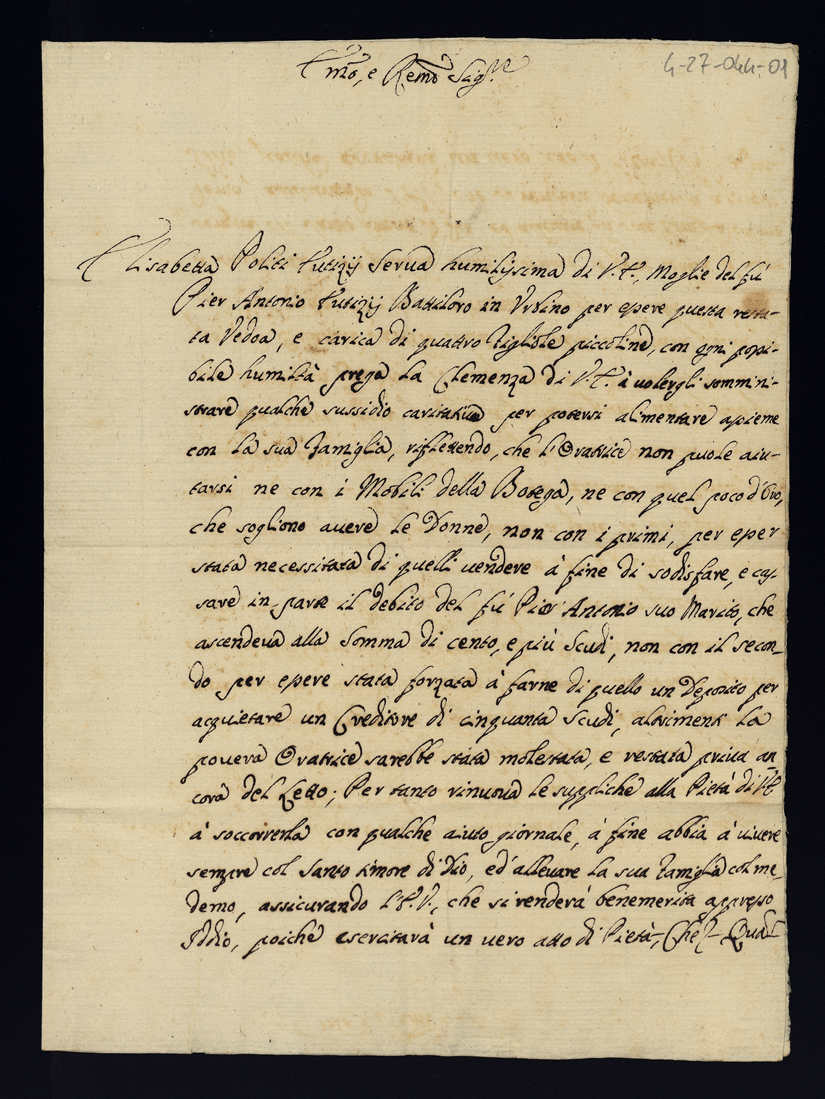 4-27-044-01
Emo, e Remo Sig.re
Elisabetta Politi Eutizij Serua humilissima di V.E., Moglie del fù
Pier Antonio Eutizij Battiloro in Vrbino per essere questa resta-
ta Vedoa, e carica di quattro Figliole piccoline, con ogni possi-
bile humiltà prega la Clemenza di V.E. à uolergli sommini-
strare qualche sussidio caritatiuo per potersi alimentare assieme
con la sua Famiglia, riflettendo, che l'Oratrice non puole aiu-
tarsi ne con i Mobili della Botega, ne con quel poco d'Oro,
che sogliono auere le Donne, non con i primi, per esser
stata necessitata di quelli uendere à fine di sodisfare, e cas-
sare in parte il debito del fù Pier Antonio suo Marito, che
ascendeua alla Somma di cento, e più Scudi, non con il secon-
do per essere stata forzata à farne di quello un Deposito per
acquietare un Creditore di cinquanta scudi, altrimenti la
pouera Oratrice sarebbe stata molestata, e restata priua an
cora del Letto; Per tanto rinuoua le suppliche alla Pietà di V.E.
à soccorrerla con qualche aiuto giornale, à fine abbia à uiuere
sempre col Santo timore di Dio, ed' alleuare la sua Famiglia col me,
demo, assicurando l'E.V., che si renderà benemerita appresso
Iddio, poiché esercitarà un uero atto di Pietà, Che Quam